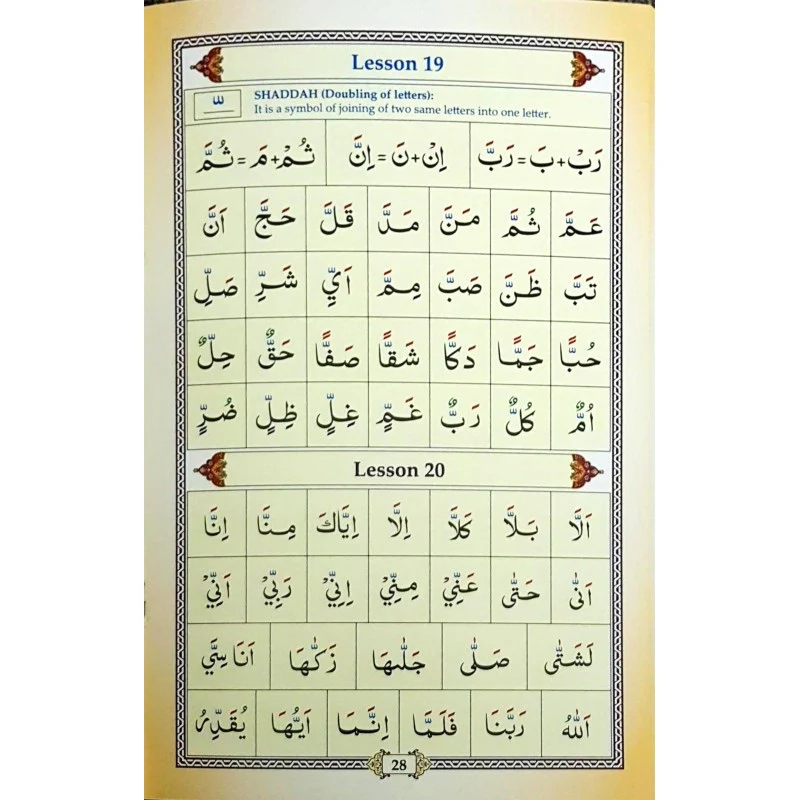 Lesson 19
SHADDAH (Doubling of letters):
It is a symbol of joining of two same letters into one letter.
رَبْ+بَ=رَبَّ اِنْ+نَ=اِنَّ ثُمْ+مَ=ثُمَّ
عَمَّ ثُمَّ مَنَّ مَدَّ قَلَّ حَجَّ اَنَّ
تَبَّ ظَنَّ صَبَّ مِمَّ اَيِّ شَرِّ صَلِّ
حُبًّا جَمًّا دَكًّا شَقًّا صَفًّا حَقٌّ حِلٌّ
اُمٌّ كُلٌّ رَبٌّ غَمٍّ غِلٍّ ظِلٍّ ضُرٍّ
Lesson 20
اَلَّا بَلَّا كَلَّا اِلَّا اِيَّاكَ مِنَّا اِنَّا
اَنّٰى حَتّٰى عَنِّيْ مِنِّيْ اِنِّيْ رَبِّيْ اَنِّيْ
لَشَتّٰى صَلّٰى جَلّٰىهَا زَكّٰهَا اَنَاسِيَّ
اَللّٰهُ رَبَّنَا فَلَمَّا اِنَّمَا اَيُّهَا يُقَدِّرُ
28